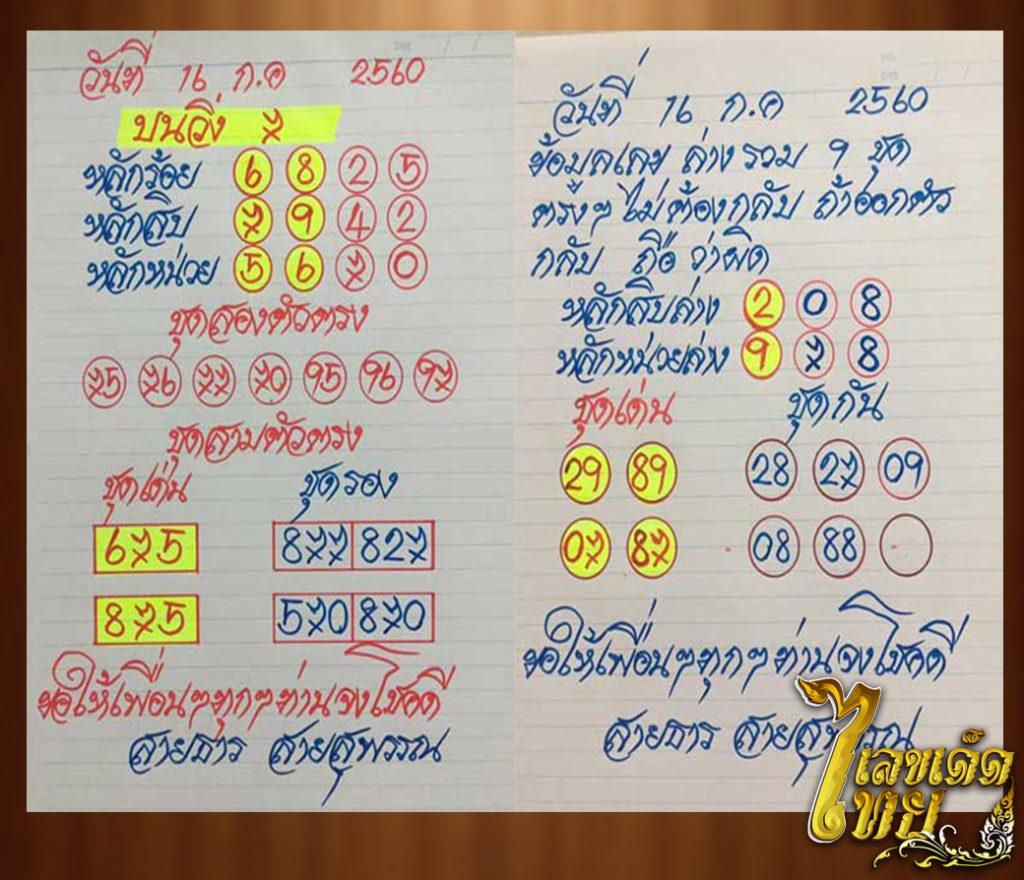 วันที่ 16 ก.ค 2560
บนวิ่ง 7
หลักร้อย 6 8 2 5
หลักสิบ 7 9 4 2
หลักหน่วย 5 6 7 0
ชุดสองตัวตรง
75 76 77 70 95 96 97
ชุดสามตัวตรง
ชุดเด่น ชุดรอง
675 877 827
875 570 870
ขอให้เพื่อนๆทุกๆท่านจงโชคดี
สายธาร สายสุพรรณ
วันที่ 16 ก.ค 2560
ข้อมูลเลข ล่าง รวม 9 ชุด
ตรงๆ ไม่ต้องกลับ ถ้าออกตัว
กลับ ถือ ว่าผิด
หลักสิบล่าง 2 0 8
หลักหน่วยล่าง 9 7 8
ชุดเด่น ชุดกัน
29 89 28 27 09
07 87 08 88
ขอให้เพื่อนๆทุกๆท่านจงโชคดี
สายธาร สายสุพรรณ
เลขเด็ด
ไทย